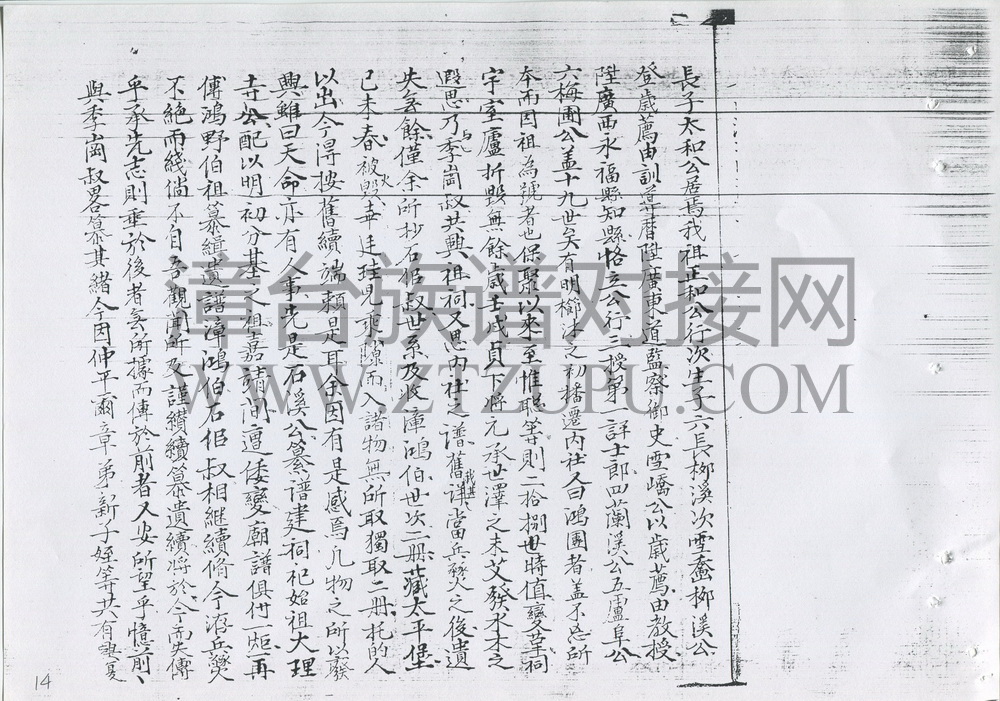 長子太和公居焉我祖正和公行次生子六長柳溪次雪蚕柳溪公
登歲薦由訓導曆陞廣東道監察御史雪嶠公以歲薦由教授
陞廣西永福縣知縣恪立公行三授第一評士郎四蘭溪公五盧阜公
六梅圃公盖十九世矣有明之初播遷內社又曰鴻團者盖不忘所
本而因祖為號者也保聚以來至惟聰等則二拾捌世時值變革祠
宇室廬折毀無餘歲壬戌貞下將元承世澤之未艾發水木之
遐思乃與季崗叔共興祖祠又思內社之譜舊詳當兵燹之後遺
失無餘僅余所抄石佢叔世系及漳鴻伯世次二冊藏太平堡
己未春被火毀見而入諸物無所取獨取二冊托的人
以出今淂按舊續端賴是耳余因有是感焉凢物之所以廢
興雖曰天命亦有人事先是石溪公纂譜建祠祀始祖大理
寺公配以明初分基之祖嘉靖间遭倭變廟譜俱付一炬再
傳鴻野伯祖纂緝遺譜漳鴻伯石佢叔相継續脩今洊兵燹
不絶而綫倘不自吾觀聞所及謹續續纂遺續將於今而失傳
乎承先志則垂於後者無所據而傳於前者又安所望乎憶前
與季崗叔畧纂其緒今因仲平爾章弟新子姪等共有
14
章台族谱对接网
WWW.ZTZUPU.COM